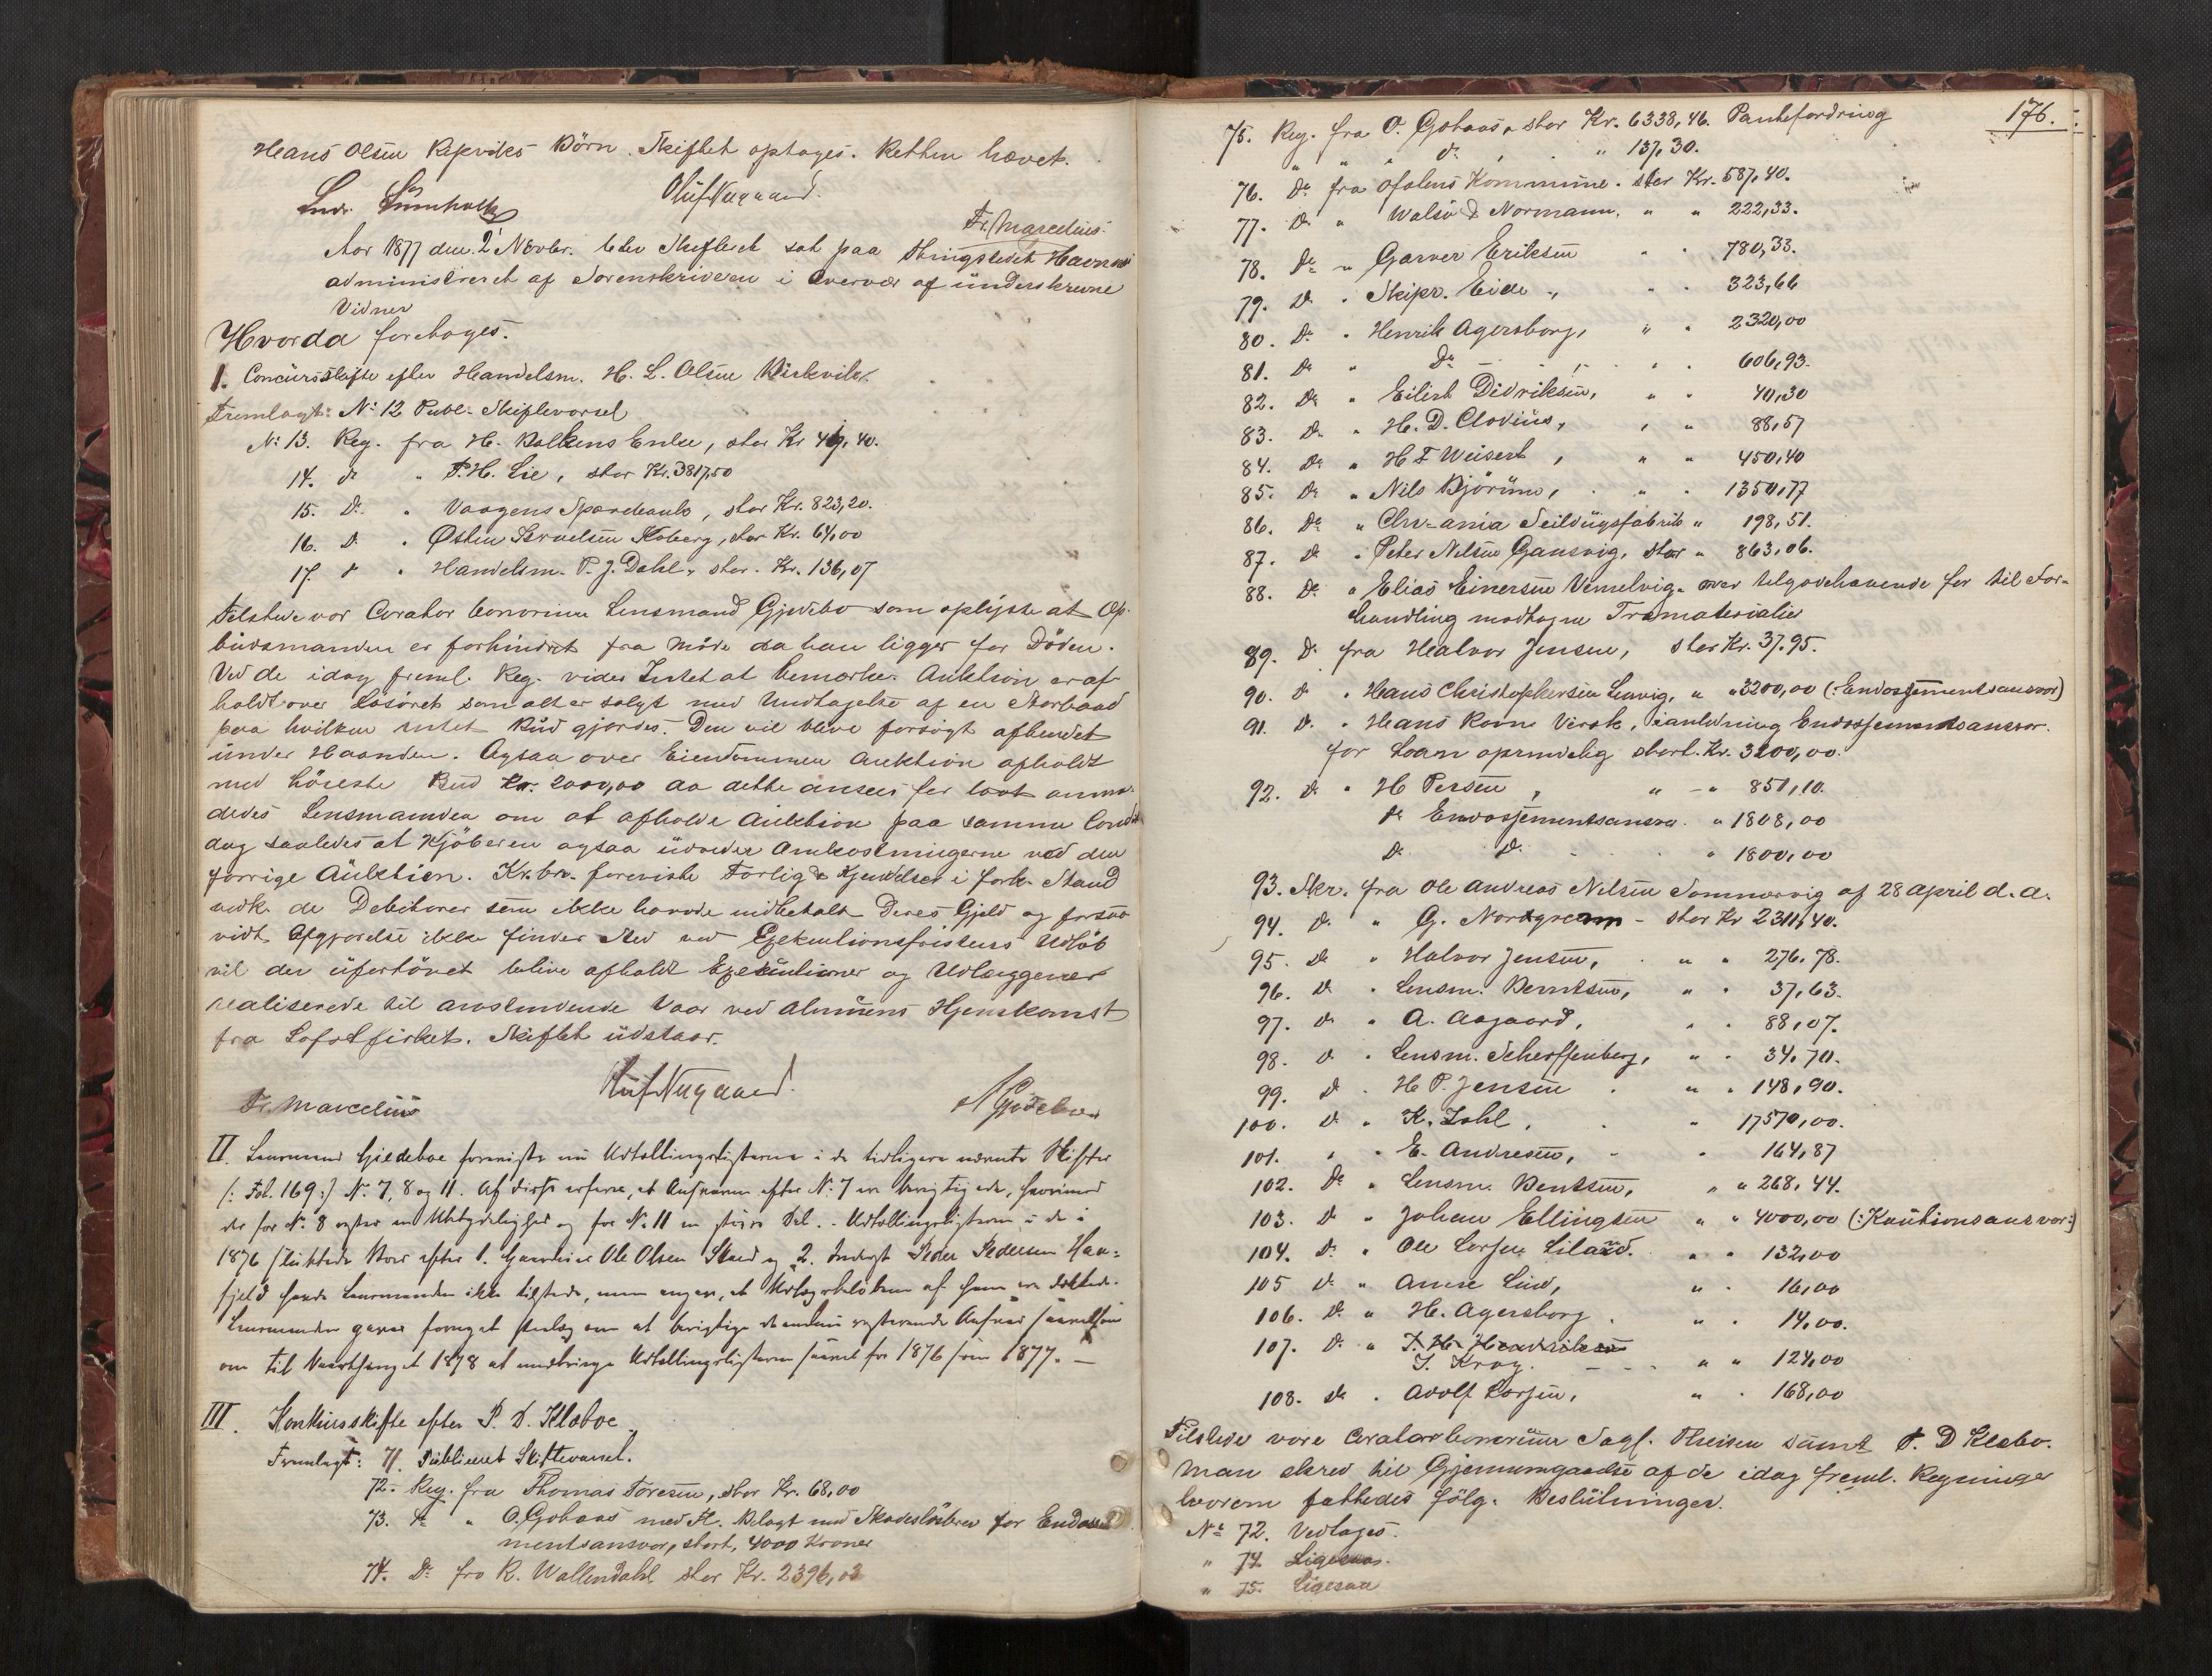 Hans Olsen Repviks Børn. Skiftet optages. Retten hævet.
Oluf Nygaard.
Fr. Marcelius
Aar 1877 den 2 Novbr. blev Skifteret sat paa Thingstedet Havnnes
administreret af Sorenskriveren i Overvær af underskrevne
Vidner
Hvorda foretoges.
1. Concursskifte efter Handelsm. H. L. Olsen Birkvik.
Fremlagt: No 12 Publ. Skiftevarsel
No 13. Reg. fra H. Balkens Enke, stor Kr 49,40.
14. do " P. H. Lie, stor Kr. 3817,50
15. Do " Vaagens Sparebank, stor Kr. 823,20.
16. D. " Østen Isruelsen Koberg, stor Kr. 64,00
17. d " Handelsm. P. J. Dahl, stor. Kr. 136,07
Tilstede var Curator bonorum Lensmand Gjedebo som oplyste at Op-
budsmanden er forhindret fra Møde da han ligger for Døden.
Ved de idag freml. Reg. vides Intet at bemærke. Auktion er af
holdt over Løsøret som alt er solgt med Undtagelse af en Storbaad
paa hvilken intet Bud gjordes. Den vil blive forsøgt afhendet
under Haanden. Ogsaa over Eiendommen Auktion afholdt
med høieste Bud Kr. 2000,00 aa dette ansees for lavt anmo-
dedes Lensmanden om at afholde Auktion paa samme
dog saaledes at Kjøberen ogsaa udreder Omkostningerne ved den
forrige Auktion. Kr. bo. foreviste Forlig & Kjendelser i fork. Stand
vedk. de Debitorer som ikke havde indbetalt Deres Gjeld og forsaa
vidt Afgjørelse ikke finder Sted ved Exekutionsfristens Udløb
vil der ufortøvet blive afholdt Exekutioner og Udlæggene
realiserede til anstundende Vaar ved Almuens Hjemkomst
fra Lofotfisket. Skiftet udstaar.
Fr. Marcelius
Oluf Nygaard.
N Gjedebo
II. Lensmand Gjedeboe foreviste nu Udtællingslisterne i de tidligere nævnte Skifter
/: Fol. 169 :/ No. 7, 8 og 11. Af disse erfares, at Ansvaren efter No. 7 er berigtigede, hvorimod
der for No. 8 rester en Ubetydelighed og for No. 11 en større Del. - Udtællingslisterne i de i
1876 sluttede Boer efter 1. Gaardeier Ole Olsen Skard og 2. Inderst Peder Pedersen Hau-
fjeld havde Lensmanden ikke tilstede, men angav, at Udlægsbeløbene af ham ere dækkede.
Lensmanden gaves fornyet Paalæg om at berigtige det endnu resterende Ansvar saavelsom
om til Vaarthinget 1878 at medbringe Udtællingslisterne saavel for 1876 som 1877. —
III. Konkursskifte efter P. D. Klæboe
Fremlagt: 71. Publiceret Skiftevarsel.
72. Reg. fra Thomas Toresen, stor Kr. 68,00
73. Do " O. Gotaas med Fl. Belagt med Skadesløsbrev for Endosse-
mentsansvar, stort, 4000 Kroner
74. Do fra R. Wallendahl stor Kr. 2396,03
176.
75. Reg. fra O. Gotaas, stor Kr. 6338,46. Pantefordring
" " " do , " 137,30.
76. Do fra Ofotens Kommune. stor Kr. 587,40.
77. D. " Walsø & Normann, " " 222,33.
78. Do " Garver Eriksen " " 780,33.
79. D. " Skipr. Eide " " 323,66
80. Do " Henrik Agersborg, " " 2320,00
81. Do " Do - " " 606,93.
82. Do " Eilert Didriksen, " " 40,30
83. Do " H. D. Clodius, " " 88,57
84. Do " H F Weisert, " " 450,40
85. Do " Nils Bjørum, " " 1350,77
86. Do " Chr-ania Seildugsfabrik " 198,51.
87. Do " Peter Nilsen Gansvig, stor " 863,06.
88. Do " Elias Einersen Vemelvig. over tilgodehavende for til For-
handling modtagne Træmaterialier
89. D. fra Healvor Jensen, stor Kr. 37.95.
90. d " Hans Christophersen Lenvig, " " 3200,00 (: Endossementsansvar)
91. D. " Hans Roon Virak, ianledning Endossementsansvar.
for Laan oprindelig stort. Kr. 3200,00.
92. D. " H Persen, " - " 851,10.
do Endossementsansvar. " 1808,00
D. D. " 1800,00
93. Skr. fra Ole Andreas Nilsen Sommervig af 28 April d. A.
94. D. " G. Nordgram - stor Kr 2311,40.
95. Do " Halvor Jensen, " " 276,78.
96. D. " Lensm. Berntsen, " " 37,63.
97. D. " A. Aagaard, " " 88,07.
98. D. " Lensm. Scheffenberg, " " 34,70.
99. D. " H P. Jensen " " 148,90.
100. D. " K. Zahl, " 17570,00.
101. " " E. Andresen, - " 164,87
102. Do " Lensm. Bentsen, " " 268,44.
103. D. " Johan Ellingsen " " 4000,00 (: Kautionsansvar:)
104. D. " Ole Larsen Liland. " " 132,00
105 D. " Anne Lind, " " 16,00
106. D. " H. Agersborg " " 14,00.
107. D. " J. H. Hendriksen
J. Krog. - - - " " 124,00
108. Do " Adolf Larsen, " " 168,00
Tilstede vare Curator bonorum Sagf. Theisen samt P. D Klæbo.
Man skred til Gjennemgaaelse af de idag freml. Regninger
hvorom fattedes følg. Beslutninger.
No 72. Vedtages.
" 74. Ligesaa.
" 75. Ligesaa